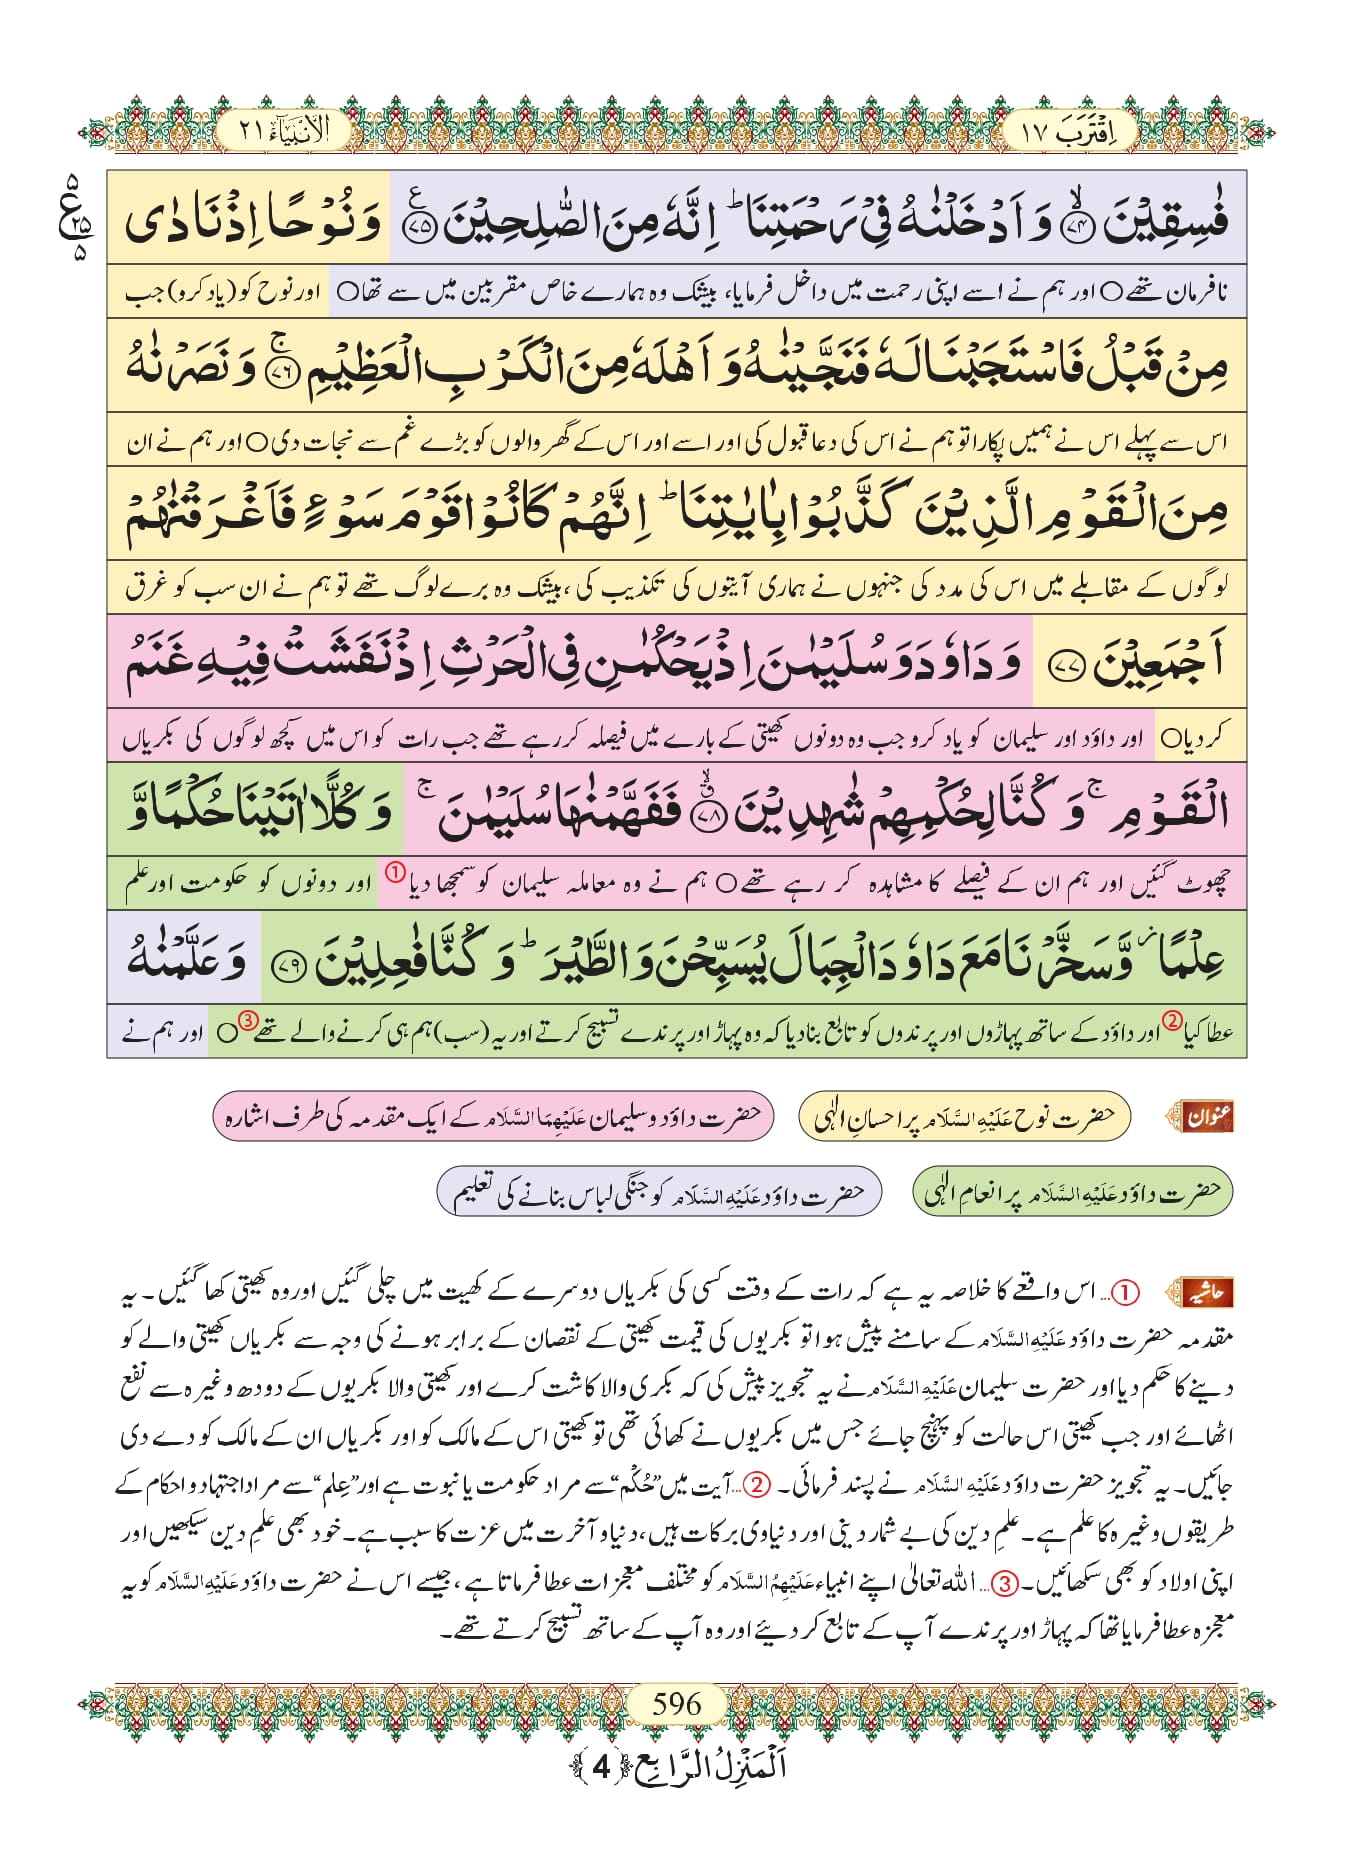 اِقْتَرَبَ ١٧
الْاَنْبِيَآء ٢١
فٰسِقِيْنَ ﴿٧٤﴾ۙ وَ اَدْخَلْنٰهُ فِيْ رَحْمَتِنَا ؕ اِنَّهٗ مِنَ الصّٰلِحِيْنَ ﴿٧٥﴾ع وَ نُوْحًا اِذْ نَادٰى
٥ ع ٢٥ ٥
نافرمان تھے○ اور ہم نے اسے اپنی رحمت میں داخل فرمایا، بیشک وہ ہمارے خاص مقربین میں سے تھا○ اور نوح کو (یاد کرو) جب
مِنْ قَبْلُ فَاسْتَجَبْنَا لَهٗ فَنَجَّيْنٰهُ وَ اَهْلَهٗ مِنَ الْكَرْبِ الْعَظِيْمِ ﴿٧٦﴾ۚ وَ نَصَرْنٰهُ
اس سے پہلے اس نے ہمیں پکارا تو ہم نے اس کی دعا قبول کی اور اسے اور اس کے گھر والوں کو بڑے غم سے نجات دی○ اور ہم نے ان
مِنَ الْقَوْمِ الَّذِيْنَ كَذَّبُوْا بِاٰيٰتِنَا ؕ اِنَّهُمْ كَانُوْا قَوْمَ سَوْءٍ فَاَغْرَقْنٰهُمْ
لوگوں کے مقابلے میں اس کی مدد کی جنہوں نے ہماری آیتوں کی تکذیب کی، بیشک وہ برے لوگ تھے تو ہم نے ان سب کو غرق
اَجْمَعِيْنَ ﴿٧٧﴾ وَ دَاوٗدَ وَ سُلَيْمٰنَ اِذْ يَحْكُمٰنِ فِي الْحَرْثِ اِذْ نَفَشَتْ فِيْهِ غَنَمُ
کر دیا○ اور داؤد اور سلیمان کو یاد کرو جب وہ دونوں کھیتی کے بارے میں فیصلہ کر رہے تھے جب رات کو اس میں کچھ لوگوں کی بکریاں
الْقَوْمِ ۚ وَ كُنَّا لِحُكْمِهِمْ شٰهِدِيْنَ ﴿٧٨﴾ۙۗ فَفَهَّمْنٰهَا سُلَيْمٰنَ ۚ وَ كُلًّا اٰتَيْنَا حُكْمًا وَّ
چھوٹ گئیں اور ہم ان کے فیصلے کا مشاہدہ کر رہے تھے○ ہم نے وہ معاملہ سلیمان کو سمجھا دیا① اور دونوں کو حکومت اور علم
عِلْمًا ؗ وَّ سَخَّرْنَا مَعَ دَاوٗدَ الْجِبَالَ يُسَبِّحْنَ وَ الطَّيْرَ ؕ وَ كُنَّا فٰعِلِيْنَ ﴿٧٩﴾ وَ عَلَّمْنٰهُ
عطا کیا② اور داؤد کے ساتھ پہاڑوں اور پرندوں کو تابع بنا دیا کہ وہ پہاڑ اور پرندے تسبیح کرتے اور یہ (سب) ہم ہی کرنے والے تھے③○ اور ہم نے
عنوان حضرت نوح عَلَیْهِ السَّلَام پر احسانِ الٰہی حضرت داؤد و سلیمان عَلَیْهِمَا السَّلَام کے ایک مقدمہ کی طرف اشارہ
حضرت داؤد عَلَیْهِ السَّلَام پر انعامِ الٰہی حضرت داؤد عَلَیْهِ السَّلَام کو جنگی لباس بنانے کی تعلیم
حاشیہ ①... اس واقعے کا خلاصہ یہ ہے کہ رات کے وقت کسی کی بکریاں دوسرے کے کھیت میں چلی گئیں اور وہ کھیتی کھا گئیں۔ یہ
مقدمہ حضرت داؤد عَلَیْهِ السَّلَام کے سامنے پیش ہوا تو بکریوں کی قیمت کھیتی کے نقصان کے برابر ہونے کی وجہ سے بکریاں کھیتی والے کو
دینے کا حکم دیا اور حضرت سلیمان عَلَیْهِ السَّلَام نے یہ تجویز پیش کی کہ بکری والا کاشت کرے اور کھیتی والا بکریوں کے دودھ وغیرہ سے نفع
اٹھائے اور جب کھیتی اس حالت کو پہنچ جائے جس میں بکریوں نے کھائی تھی تو کھیتی اس کے مالک کو اور بکریاں ان کے مالک کو دے دی
جائیں۔ یہ تجویز حضرت داؤد عَلَیْهِ السَّلَام نے پسند فرمائی۔ ②...آیت میں ”حُكْم“ سے مراد حکومت یا نبوت ہے اور ”عِلم“ سے مراد اجتہاد و احکام کے
طریقوں وغیرہ کا علم ہے۔ علمِ دین کی بے شمار دینی اور دنیاوی برکات ہیں، دنیا و آخرت میں عزت کا سبب ہے۔ خود بھی علمِ دین سیکھیں اور
اپنی اولاد کو بھی سکھائیں۔ ③... اللہ تعالٰی اپنے انبیاء عَلَیْهِمُ السَّلَام کو مختلف معجزات عطا فرماتا ہے، جیسے اس نے حضرت داؤد عَلَیْهِ السَّلَام کو یہ
معجزہ عطا فرمایا تھا کہ پہاڑ اور پرندے آپ کے تابع کر دیئے اور وہ آپ کے ساتھ تسبیح کرتے تھے۔
596
اَلْمَنْزِلُ الرَّابِع ﴿4﴾